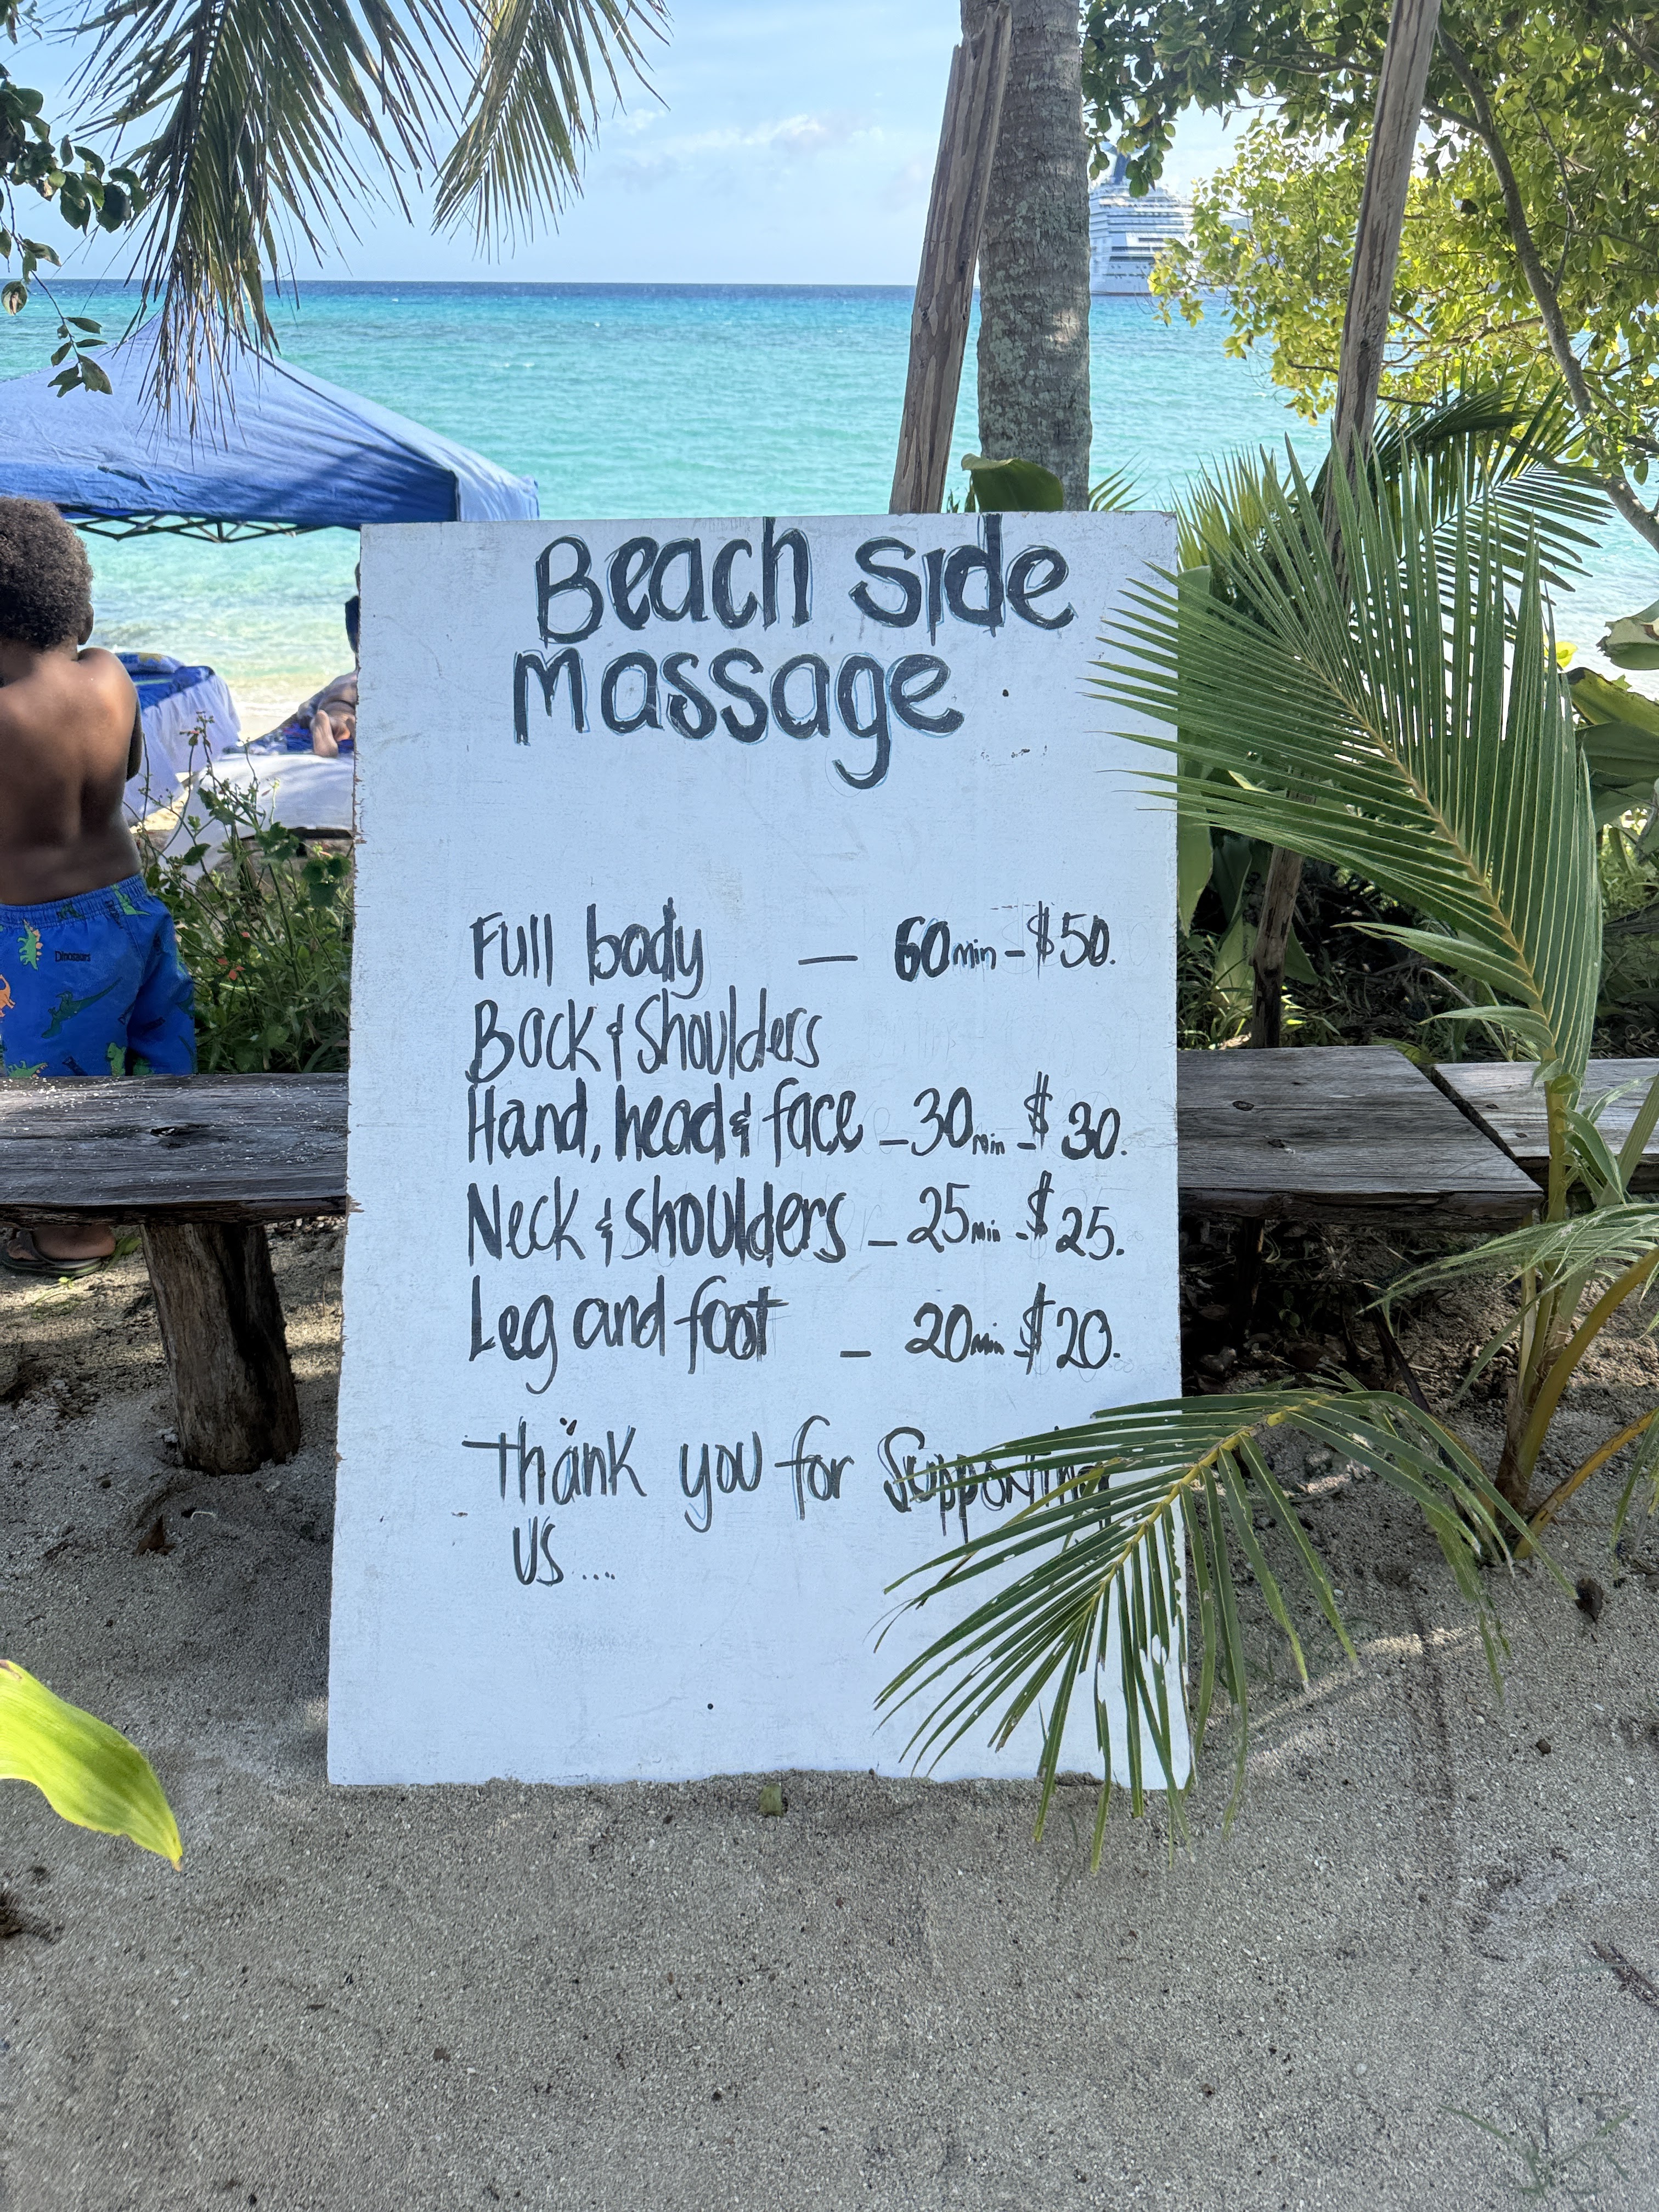 Beach side
massage
Full body — 60min - $50.
Back & Shoulders
Hand, head & face - 30min - $30.
Neck & shoulders - 25min - $25.
Leg and foot - 20min - $20.
Thank you for Supporting
us....
Dinosaurs